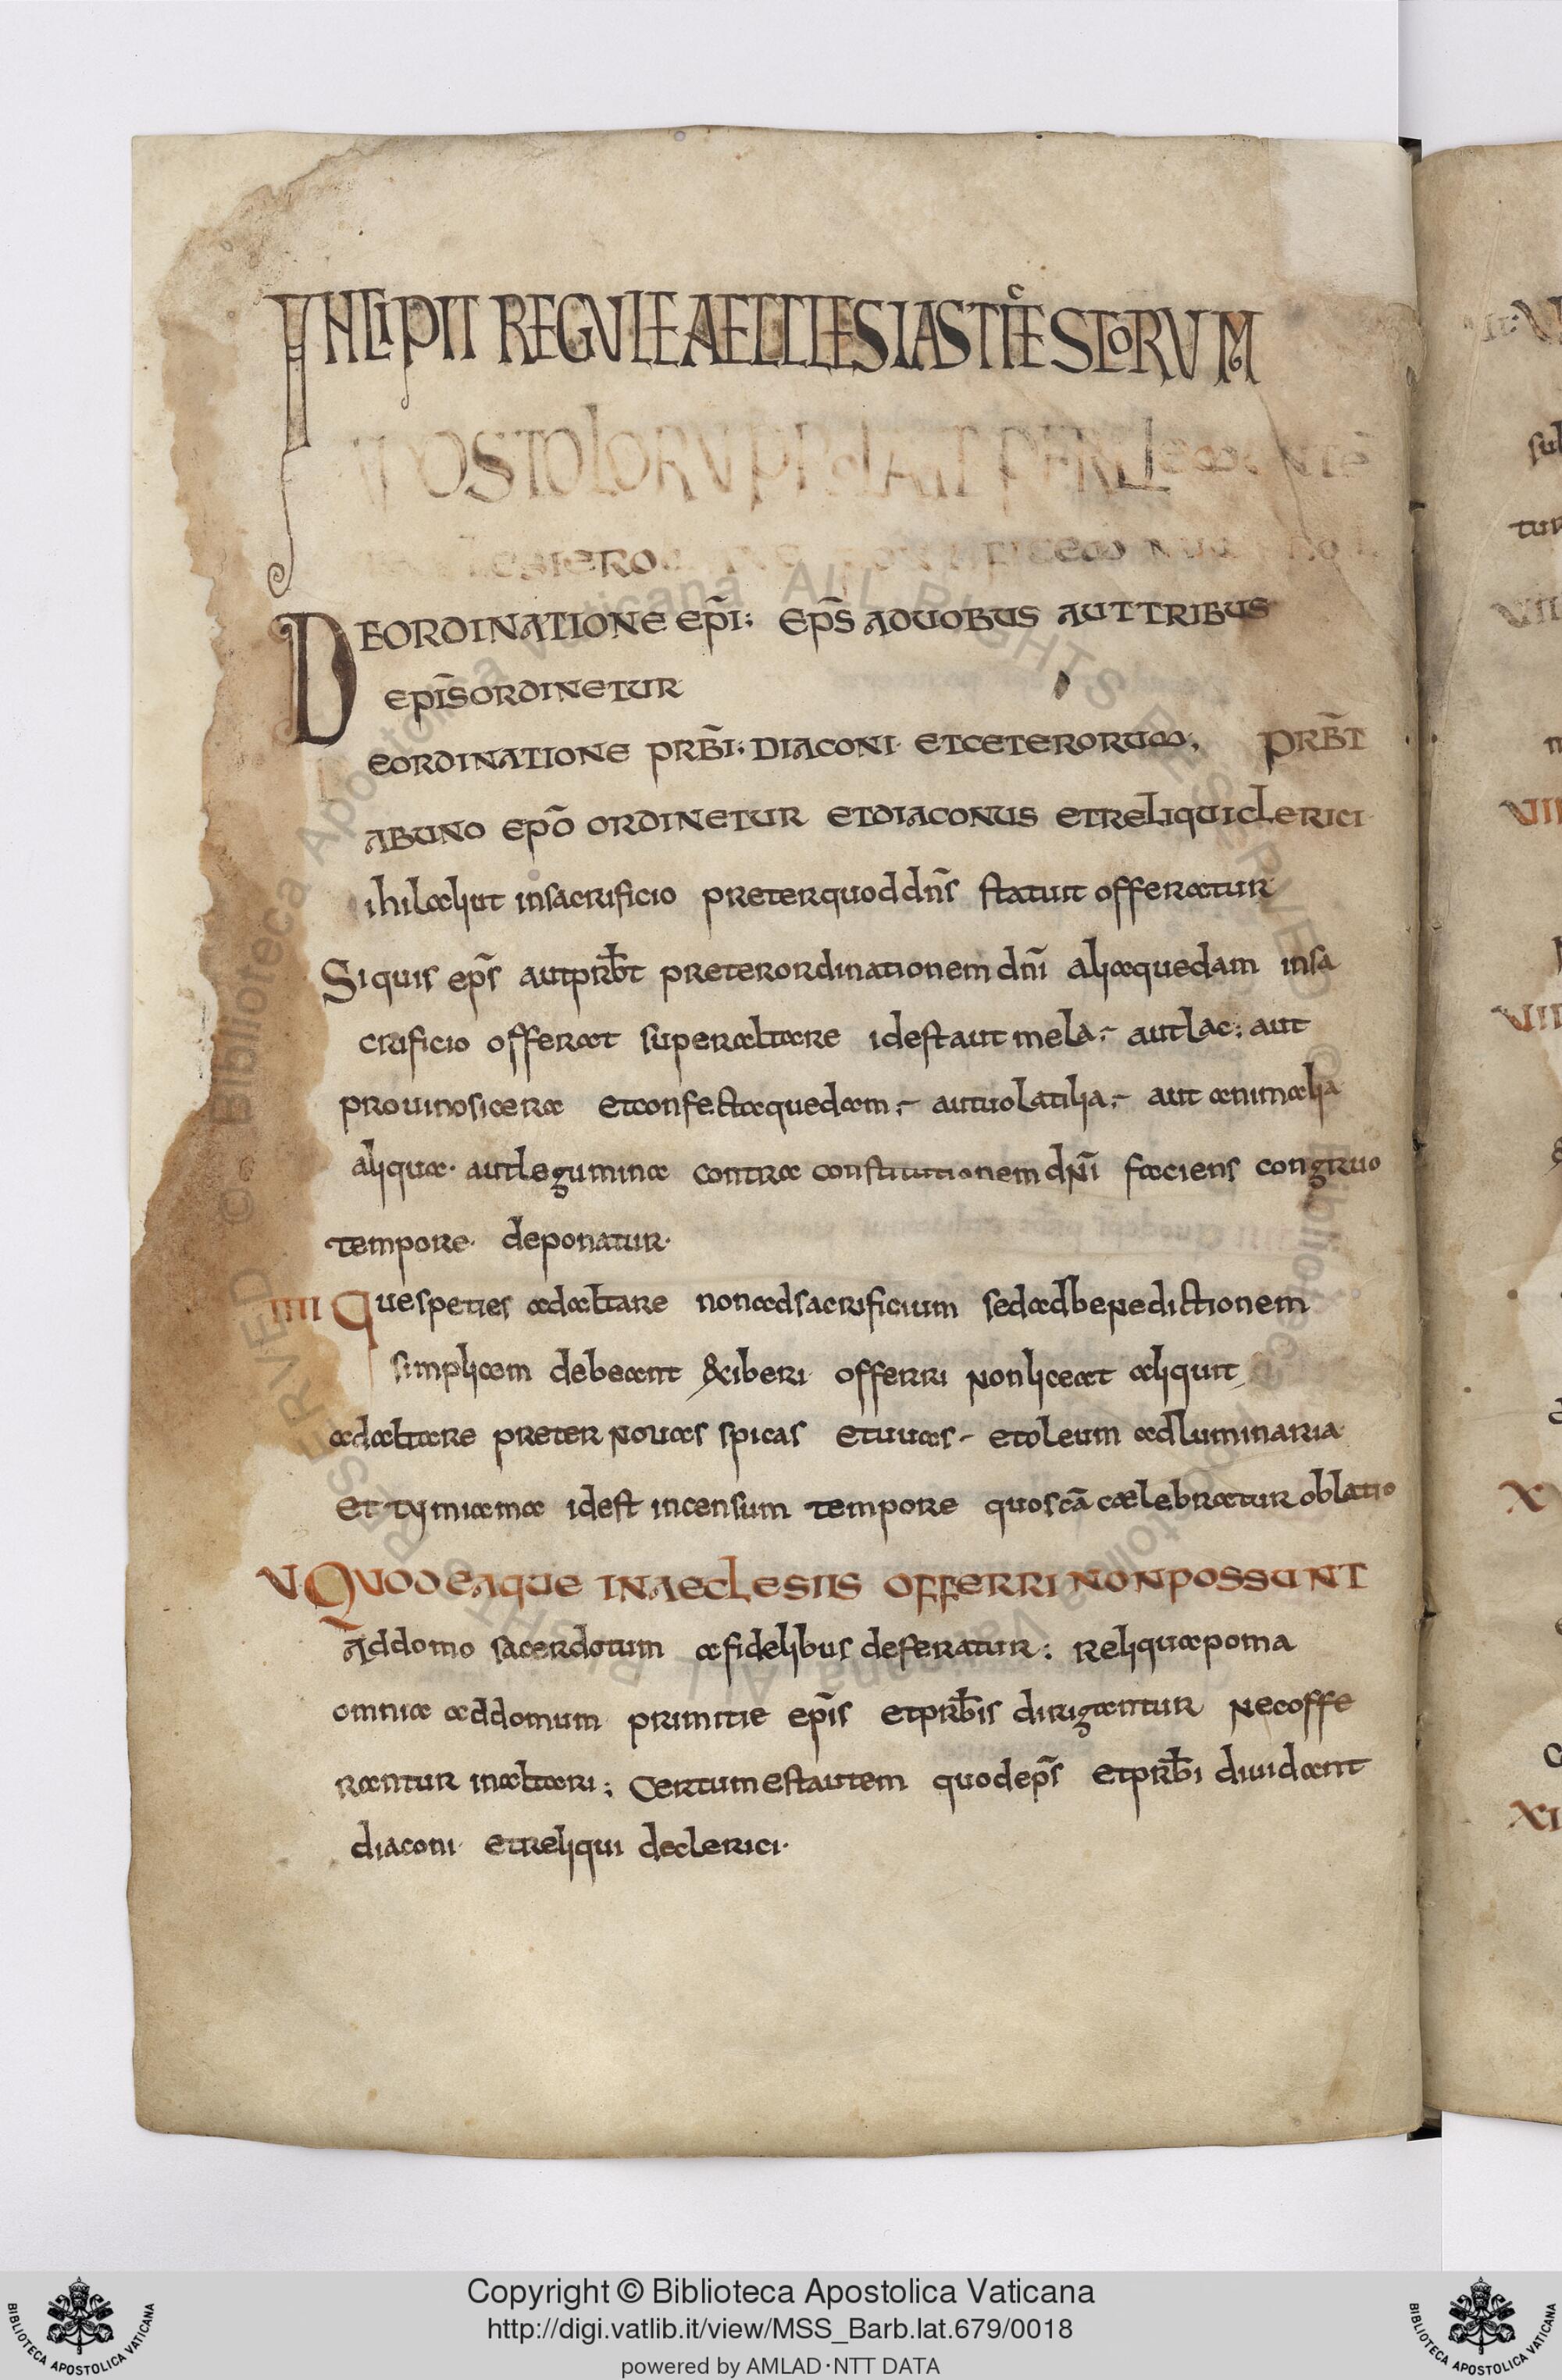 INCIPIT REGULE AECCLESIASTICE SCORUM
APOSTOLORU PRELATE PER CLEMENTE
ECLESIE RO
DE ORDINATIONE EPĪ; EPS̄ A DUOBUS AUT TRIBUS
EPĪS ORDINETUR
E ORDINATIONE PRB̄I; DIACONI ET CETERORUM, PRB̄T
AB UNO EPŌ ORDINETUR ET DIACONUS ET RELIQUI CLERICI
ihil aliut in sacrificio preter quod dn̄s statuit offeratur
Si quis ep̄s aut prb̄t preter ordinationem dn̄i alia quedam in sa
crificio offerat super altare idest aut mela; aut lac; aut
pro uino sicera et confecta quedam; aut uolatilia; aut animalia
aliqua· aut legumina contra constitutionem dn̄i faciens congruo
tempore· deponatur·
IIII Que speties ad altare non ad sacrificium sed ad benedictionem
simplicem debeant exiberi offerri non liceat aliquit
ad altare preter nouas spicas et uuas et oleum ad luminaria
et tymiama idest incensum tempore quo scā cælebratur oblatio
V QUOD EA QUE IN AECLESIIS OFFERRI NON POSSUNT
Ad domo sacerdotum a fidelibus deferatur; reliqua poma
omnia ad domum primitie epīs et prb̄is dirigantur nec offe
rantur in altari; Certum est autem quod ep̄s et prb̄i diuidant
diaconi· et reliqui declerici·
Copyright © Biblioteca Apostolica Vaticana
http://digi.vatlib.it/view/MSS_Barb.lat.679/0018
powered by AMLAD·NTT DATA